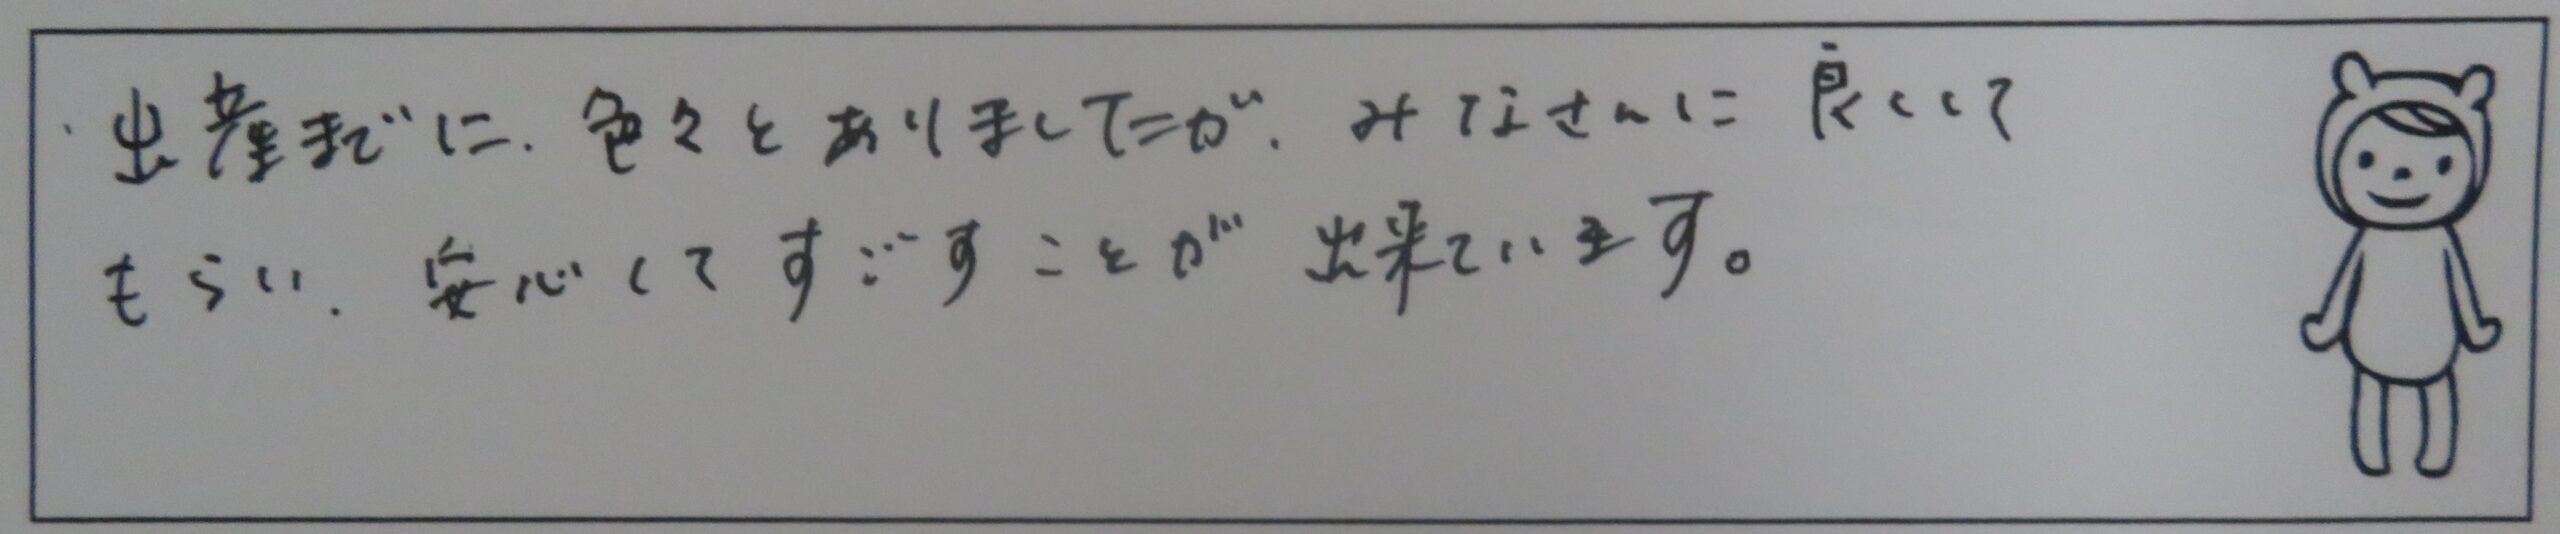 ・出産までに、色々とありましたが、みなさんに良くして
もらい、安心してすごすことが出来ています。